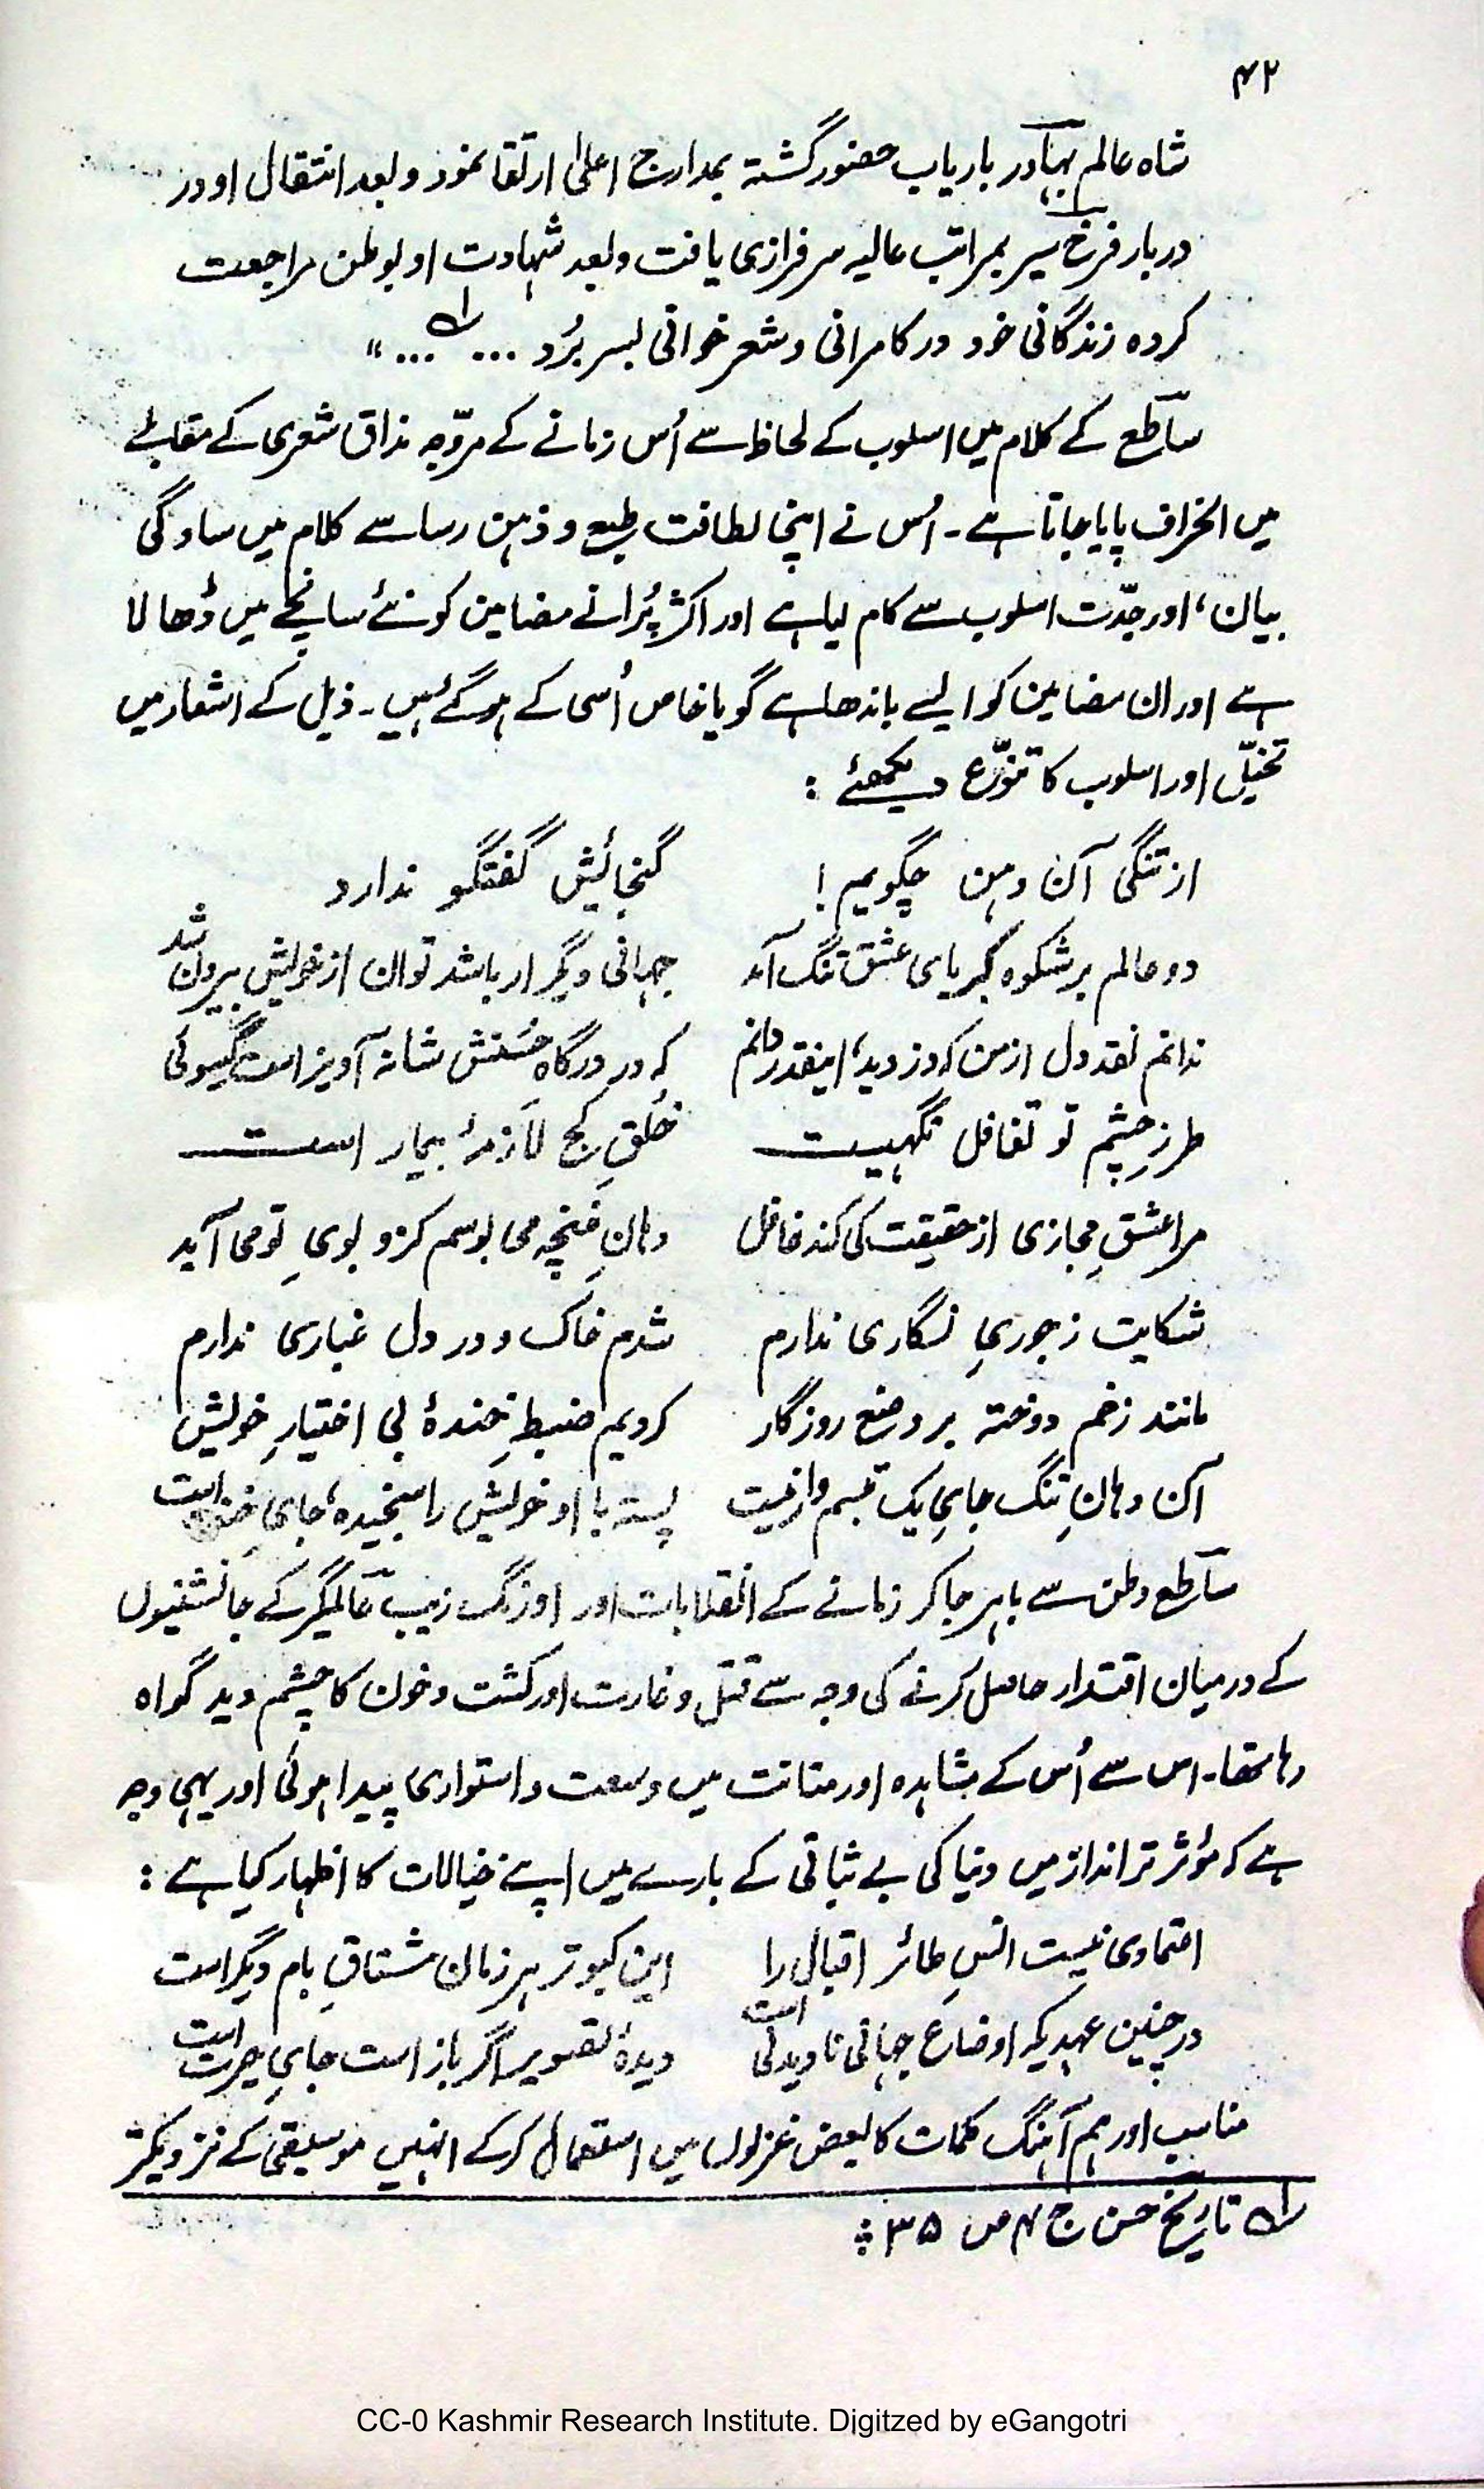 ۴۲
شاہ عالم بہادر باریاب حضور گشتہ بمدارج اعلیٰ ارتقا نمود و بعد انتقال او در
دربار فرخ سیر بمراتب عالیہ سرفرازی یافت و بعد شہادت او بوطن مراجعت
کردہ زندگانی خود در کامرانی و شعر خوانی بسر بُرد ... ؎۱ ... "
ساطع کے کلام میں اسلوب کے لحاظ سے اُس زمانے کے مروّجہ مذاق شعری کے مقابلے
میں انحراف پایا جاتا ہے۔ اُس نے اپنی لطافت طبع و ذہن رسا سے کلام میں سادگی
بیان، اور جدّت اسلوب سے کام لیا ہے اور اکثر پُرانے مضامین کو نئے سانچے میں ڈھالا
ہے اور ان مضامین کو ایسے باندھا ہے گویا خاص اُسی کے ہو گئے ہیں۔ ذیل کے اشعار میں
تخیّل اور اسلوب کا تنوّع دیکھئے :
از تنگی آن دہن چگویم ! گنجائش گفتگو ندارد
دو عالم بر شکوہ کبریای عشق تنگ آمد جہانی دیگر ار باشد توان از خویش بیرون شد
ندانم نقد دل از من کہ دزدید، اینقدر دانم کہ در درگاہِ حُسنش شانہ آویز است گیسوئی
طرزِ چشم تو تغافل نگہیست خُلقِ کج لازمۂ بیمار است
مرا عشقِ مجازی از حقیقت کی کند غافل دہانِ غنچہ می بوسم کزو بویِ تو می آید
شکایت ز جوریِ نگاری ندارم شدم خاک و در دل غباری ندارم
مانند زخم دوختہ بر وضع روزگار کردیم ضبطِ خندۂ بی اختیارِ خویش
آن دہانِ تنگ جایِ یک تبسم وار نیست پستہ با او خویش را سنجیدہ، جایِ خندہ است
ساطع وطن سے باہر جا کر زمانے کے انقلابات اور اورنگ زیب عالمگیر کے جانشینوں
کے درمیان اقتدار حاصل کرنے کی وجہ سے قتل و غارت اور کشت و خون کا چشم دید گواہ
رہا تھا۔ اس سے اُس کے مشاہدہ اور متانت میں وسعت و استواری پیدا ہوئی اور یہی وجہ
ہے کہ مؤثر تر انداز میں دنیا کی بے ثباتی کے بارے میں اپنے خیالات کا اظہار کیا ہے :
اعتمادی نیست انسِ طائر اقبال را این کبوتر ہر زمان مشتاقِ بام دیگر است
در چنین عہدیکہ اوضاع جہانی نادیدنی است دیدۂ تصویر اگر باز است جایِ حیرت است
مناسب اور ہم آہنگ کلمات کا بعض غزلوں میں استعمال کرکے انہیں موسیقی کے نزدیکتر
؎۱ تاریخ حسن ج ۴ ص ۳۵ ؞
CC-0 Kashmir Research Institute. Digitzed by eGangotri